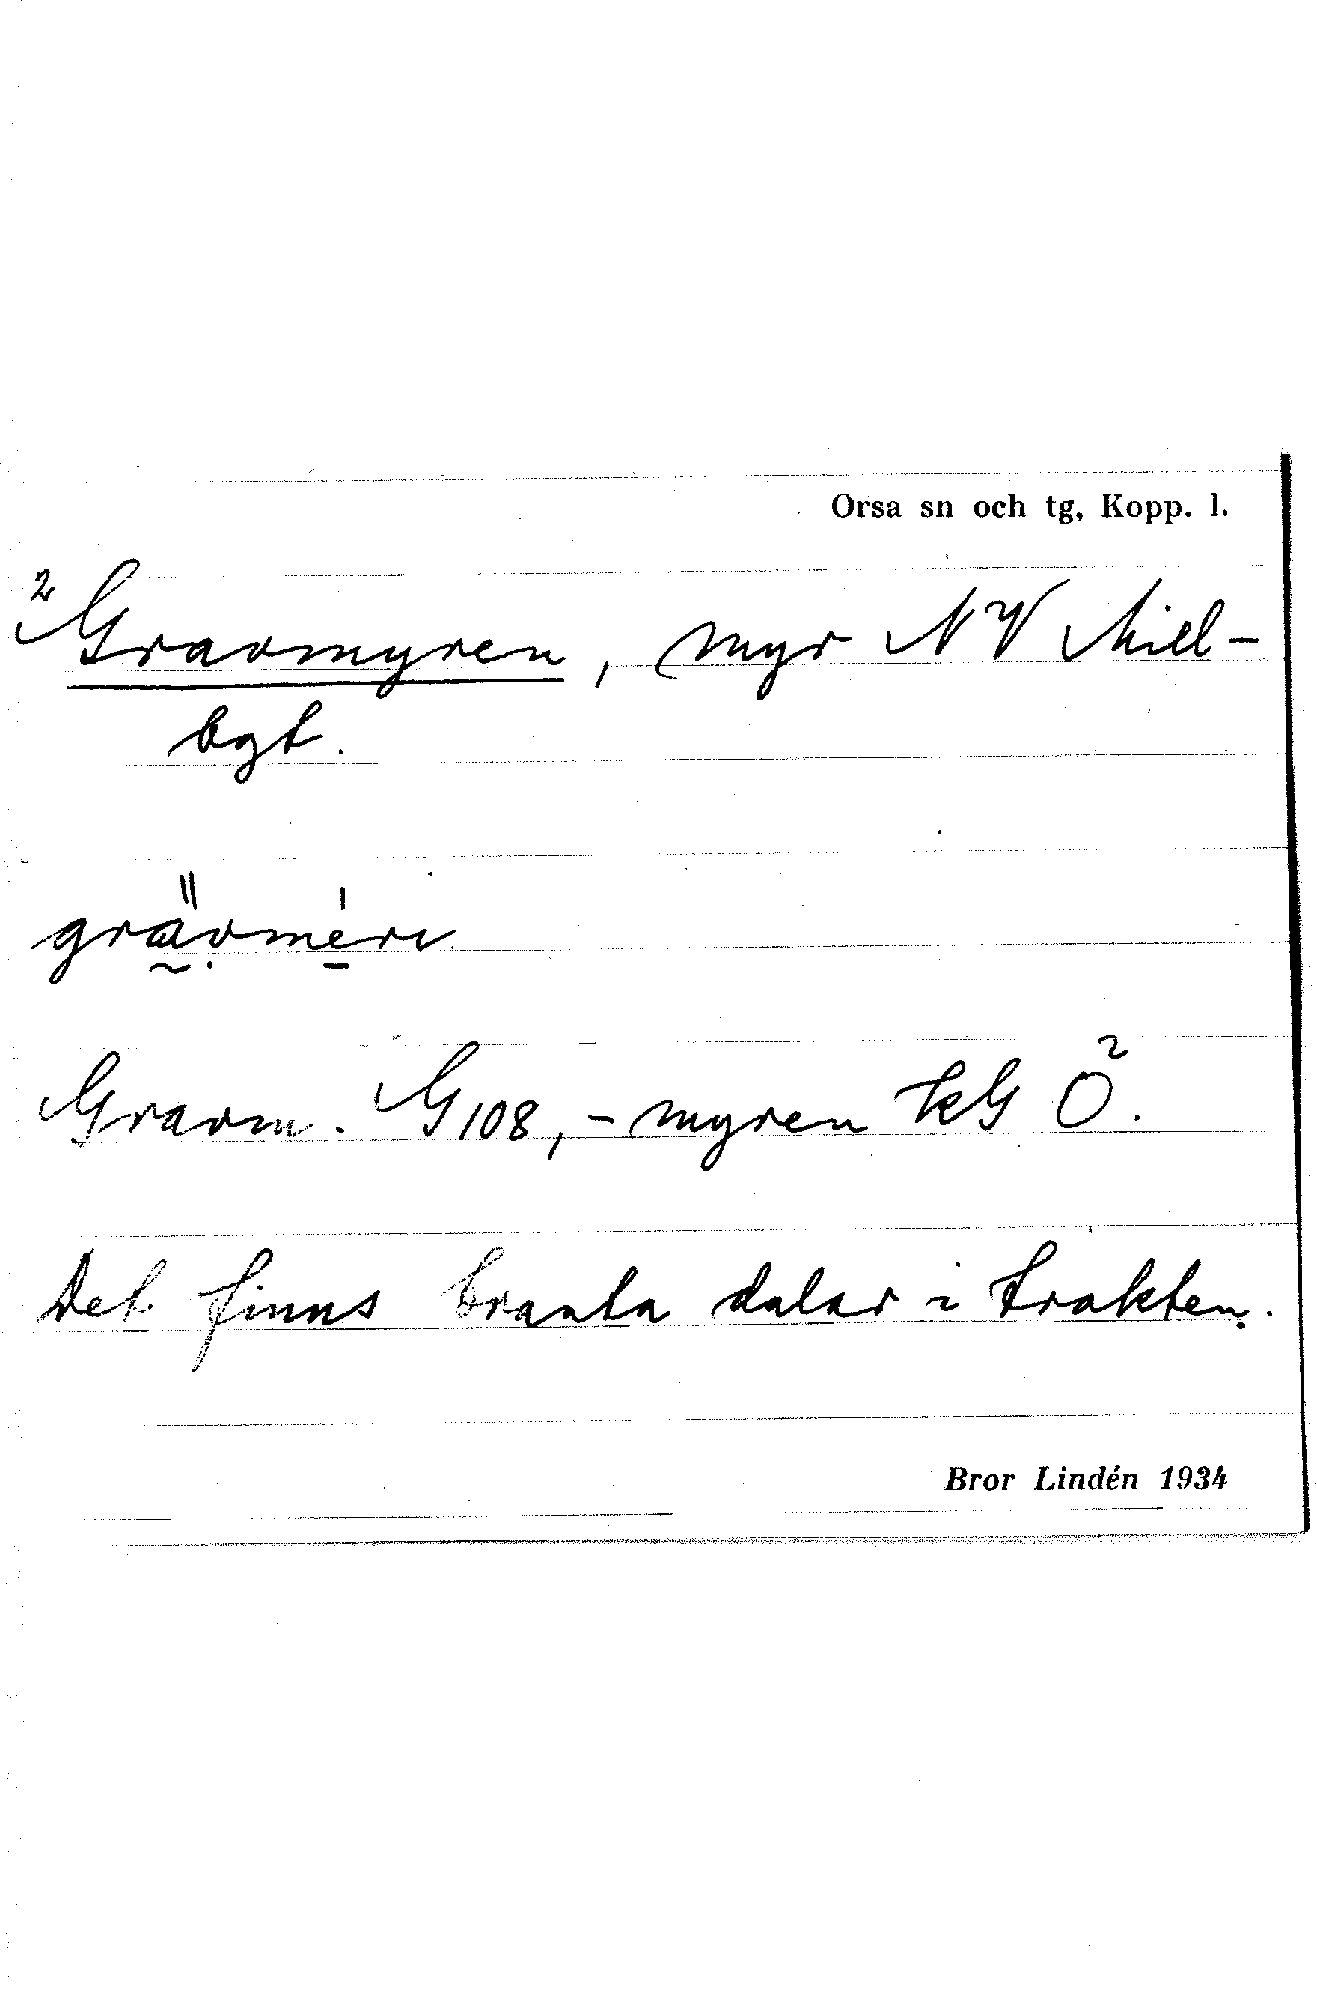 Orsa sn och tg, Kopp. l.
² Gravmyren, myr NV Mill-
bgt.
grävmeri
Gravm. G 108, -myren kG Ö².
Det finns branta dalar i trakten.
Bror Lindén 1934